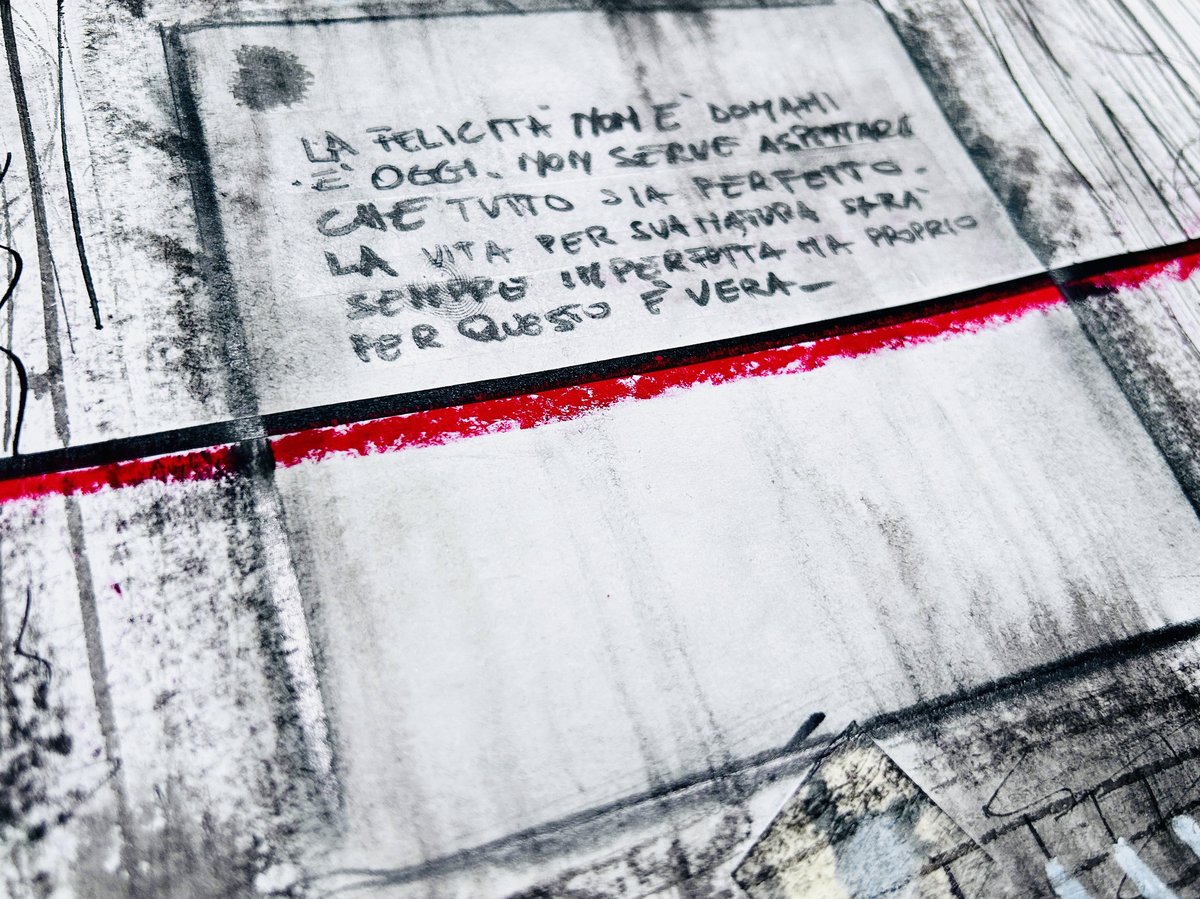 LA FELICITÀ NON È DOMANI
È OGGI. NON SERVE ASPETTARE
CHE TUTTO SIA PERFETTO.
LA VITA PER SUA NATURA SARÀ
SEMPRE IMPERFETTA MA PROPRIO
PER QUESTO È VERA-